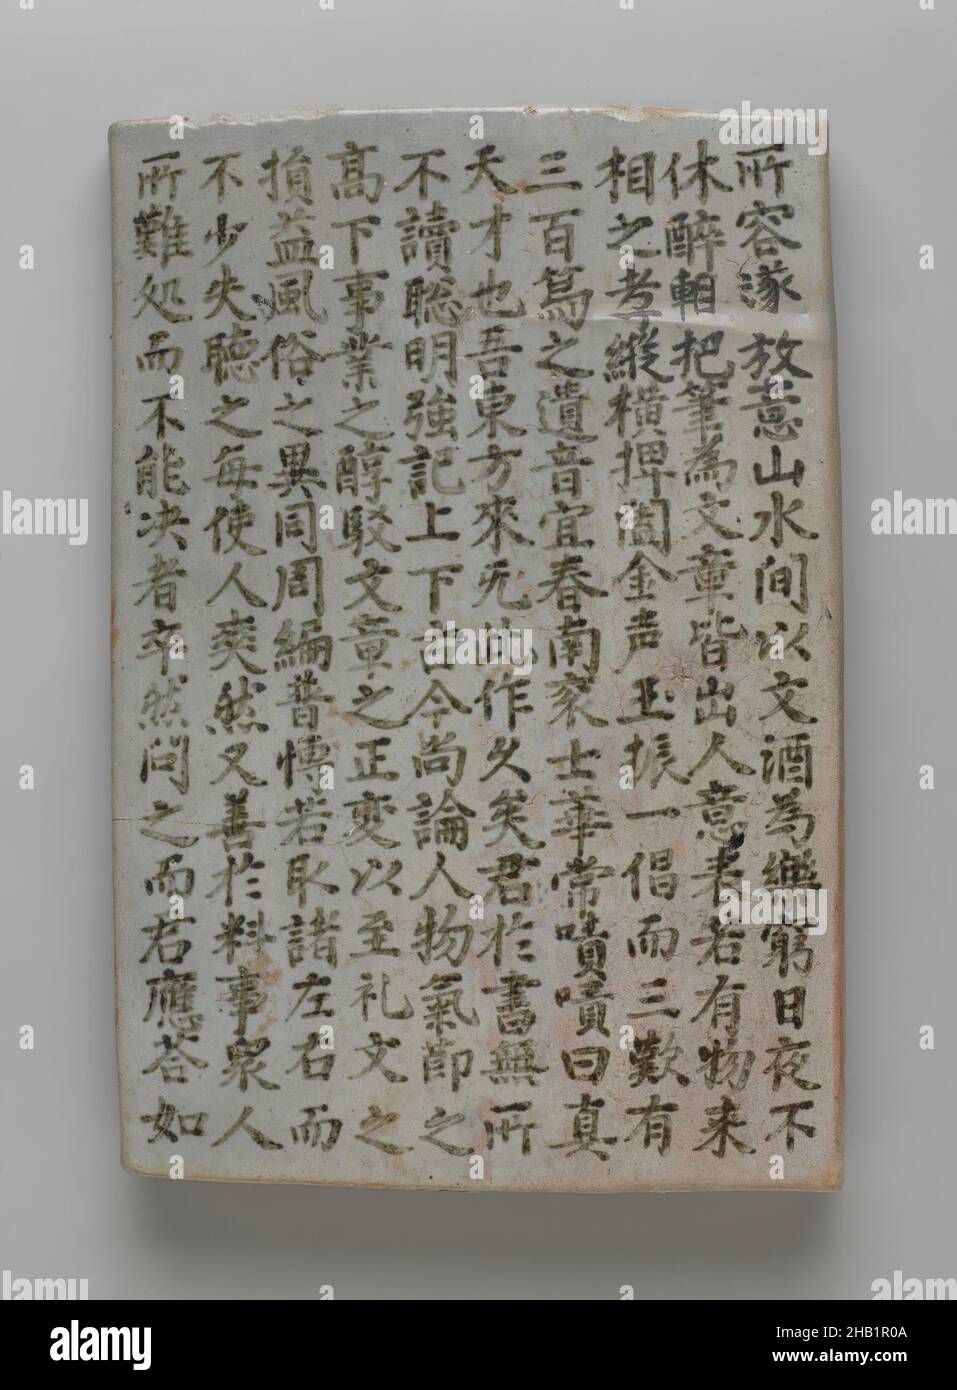 所容遂放意山水間以文酒為樂窮日夜不
休醉輒把筆為文章皆出人意表若有物来
相之者縱橫捭闔金声玉振一倡而三歎有
三百篇之遺音宜春南衮士華常嘖嘖曰真
天才也吾東方來旡此作久矣君於書無所
不讀聡明強記上下古今尚論人物氣節之
高下事業之醇駁文章之正変以至礼文之
損益風俗之異同周編普博若取諸左右而
不少失聴之每使人爽然又善於料事衆人
所難処而不能决者卒然問之而君應荅如
alamy
Image ID: 2HB1R0A
www.alamy.com